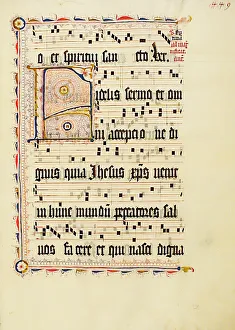 449
o et spiritui san cto
idelis sermo et om
ni acceptio ne di
gnus quia Jhesus xp̄s uenit
in hunc mundū peccatores sal
uos fa cere et qui nasci digna